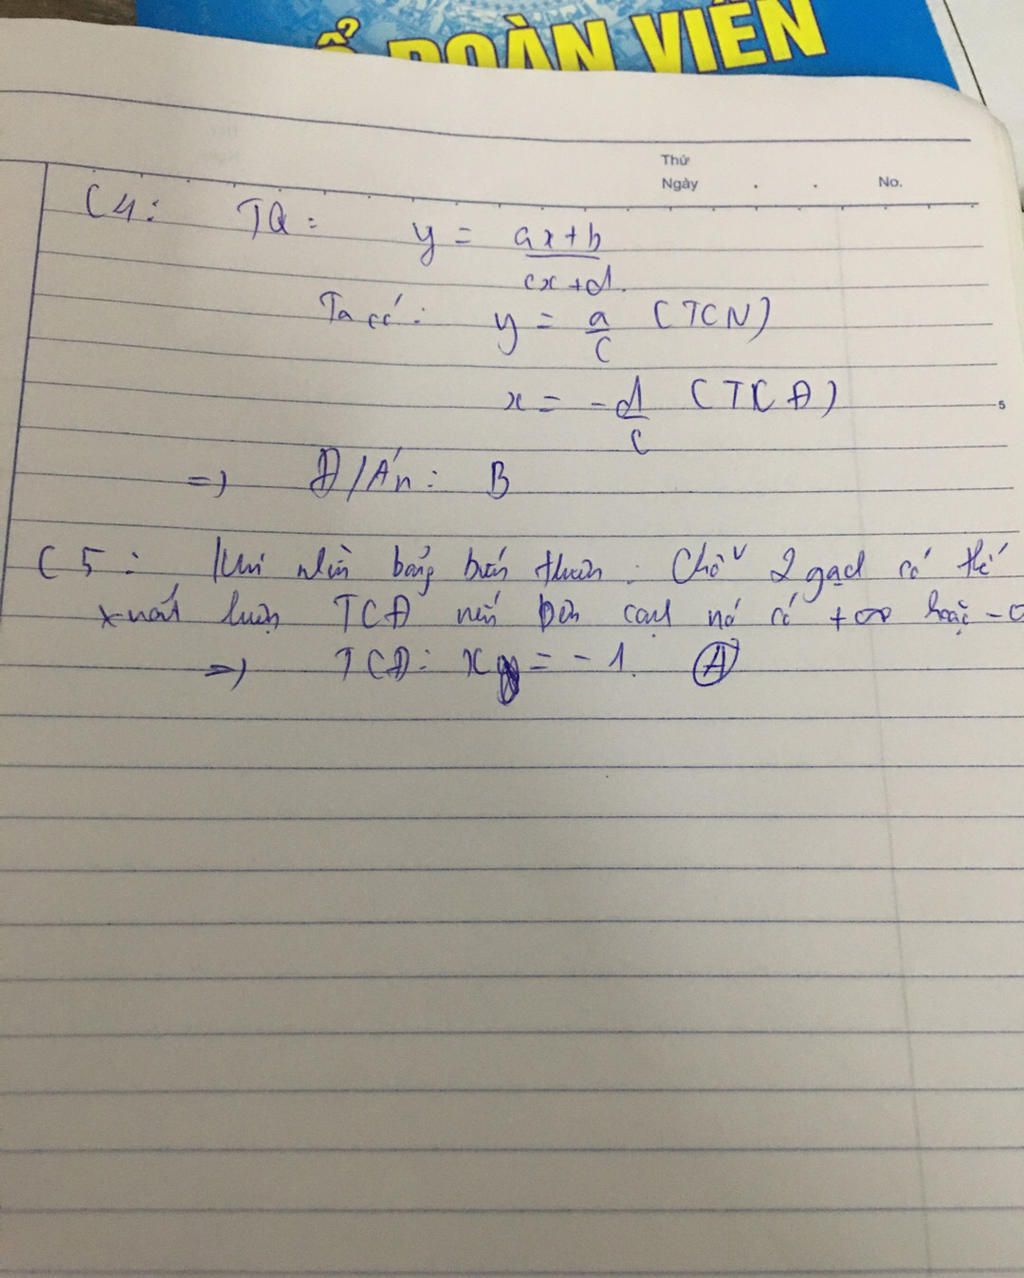 SỔ ĐOÀN VIÊN
Thứ
Ngày . . No.
C4: TQ: y = ax+b
cx+d.
Ta có: y = a (TCN)
c
x = -d (TCĐ)
c
5
=) Đ/Án: B
C5: Khi nhìn bảng biến thiên. Chỗ 2 gạch có thể
xuất hiện TCĐ nếu bên cạnh nó có +∞ hoặc -∞
=) TCĐ: x = -1. (A)